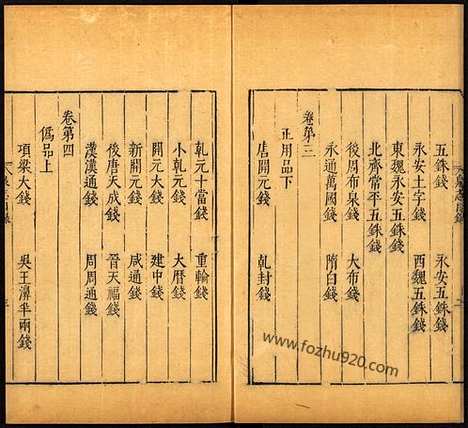 五銖錢　永安五銖錢
永安土字錢　西魏五銖錢
東魏永安五銖錢
北齊常平五銖錢
後周布泉錢　大布錢
永通萬國錢　隋白錢
卷第三
正用品下
唐開元錢　乹封錢
乹元十當錢　重輪錢
小乹元錢　大曆錢
開元大錢　建中錢
新開元錢　咸通錢
後唐天成錢　晉天福錢
漢漢通錢　周周通錢
卷第四
僞品上
項梁大錢　吳王濞半兩錢
www.fozhu920.com